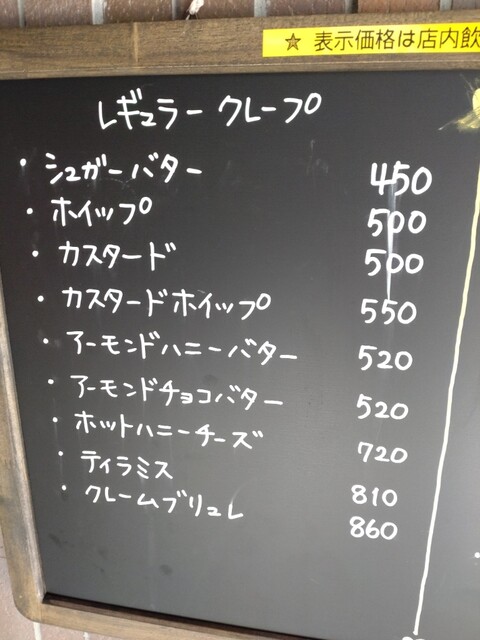 ★ 表示価格は店内飲
レギュラー クレープ
・シュガーバター 450
・ホイップ 500
・カスタード 500
・カスタードホイップ 550
・アーモンドハニーバター 520
・アーモンドチョコバター 520
・ホットハニーチーズ 720
・ティラミス 810
・クレームブリュレ 860